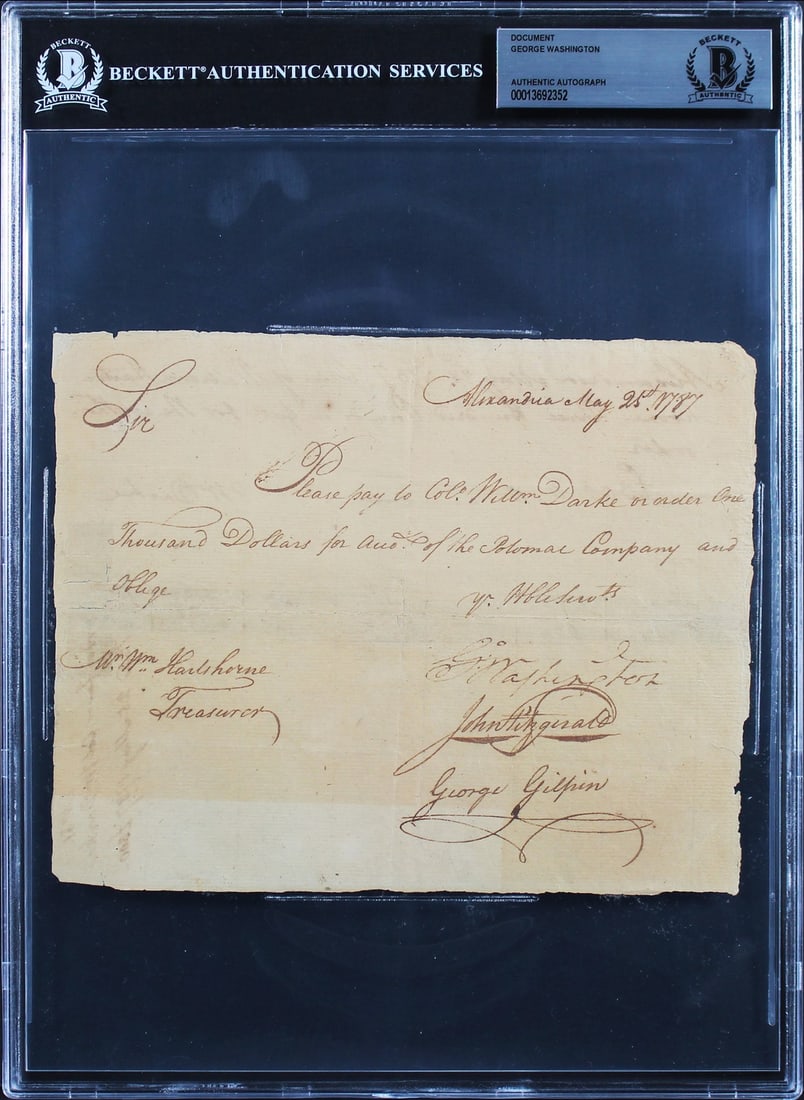 BECKETT
B
AUTHENTIC
BECKETT® AUTHENTICATION SERVICES
DOCUMENT
GEORGE WASHINGTON
AUTHENTIC AUTOGRAPH
00013692352
BECKETT
B
AUTHENTIC
Sir
Alexandria May 25t. 1787
Please pay to Colo. Willm. Darke or order One
Thousand Dollars for Acct. of the Potomac Company and
Oblige
yr. Hble Servts
Mr. Wm Hartshorne
Treasurer
Go Washington
John Fitzgerald
George Gilpin